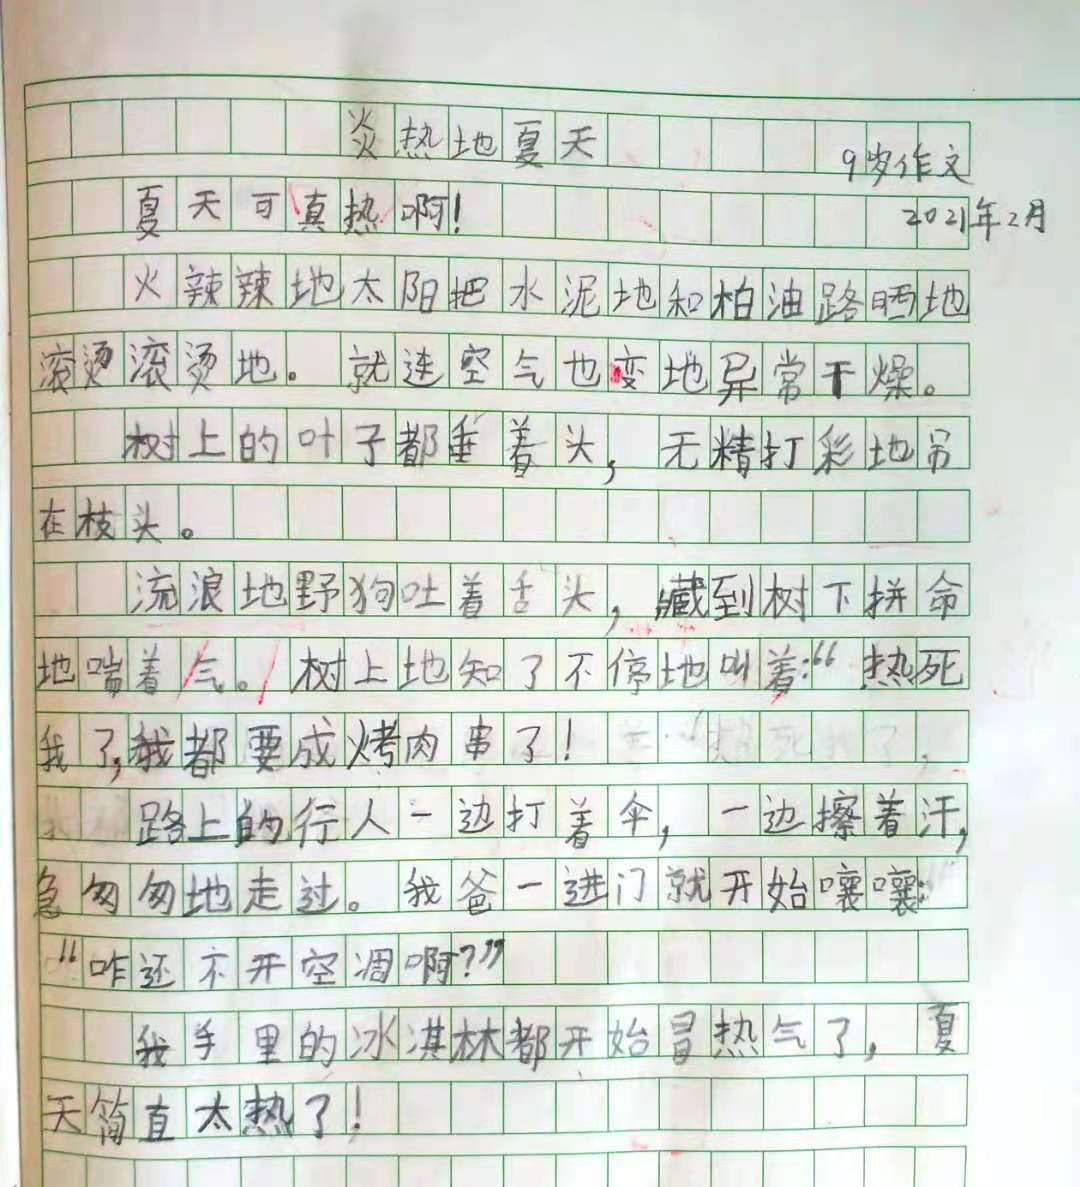 炎热地夏天
9岁作文
夏天可真热啊!
2021年2月
火辣辣地太阳把水泥地和柏油路晒地
滚烫滚烫地。就连空气也变地异常干燥。
树上的叶子都垂着头,无精打彩地吊
在枝头。
流浪地野狗吐着舌头,藏到树下拼命
地喘着气。树上地知了不停地叫着:“热死
我了,我都要成烤肉串了!
路上的行人一边打着伞,一边擦着汗,
急匆匆地走过。我爸一进门就开始嚷嚷:
“咋还不开空调啊?”
我手里的冰淇林都开始冒热气了,夏
天简直太热了!